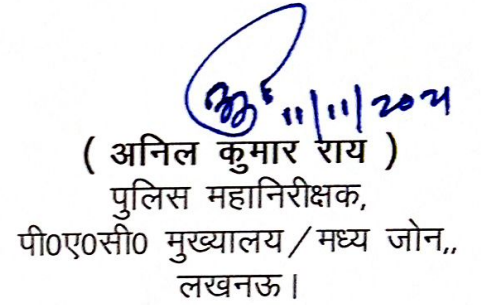 11/11/2021
( अनिल कुमार राय )
पुलिस महानिरीक्षक,
पी0ए0सी0 मुख्यालय / मध्य जोन,,
लखनऊ।